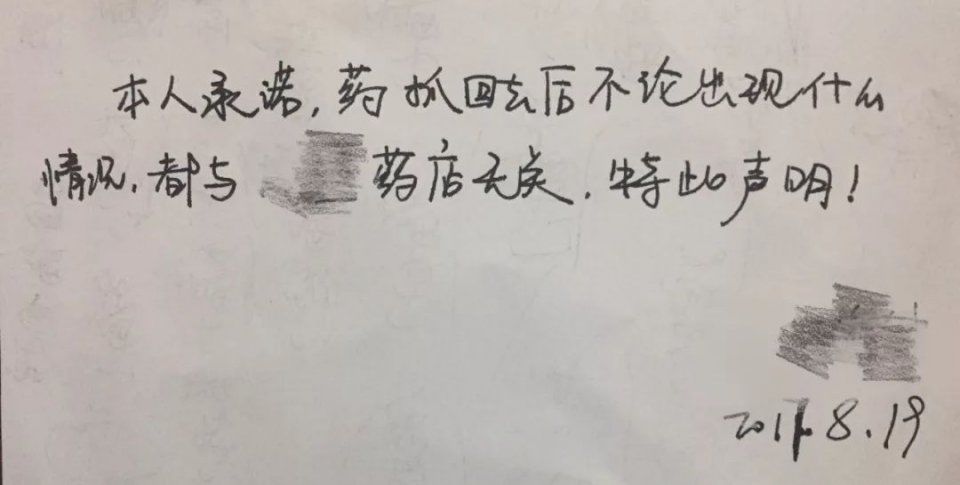 本人承诺,药抓回去后不论出现什么
情况,都与 药店无关,特此声明!
8.19